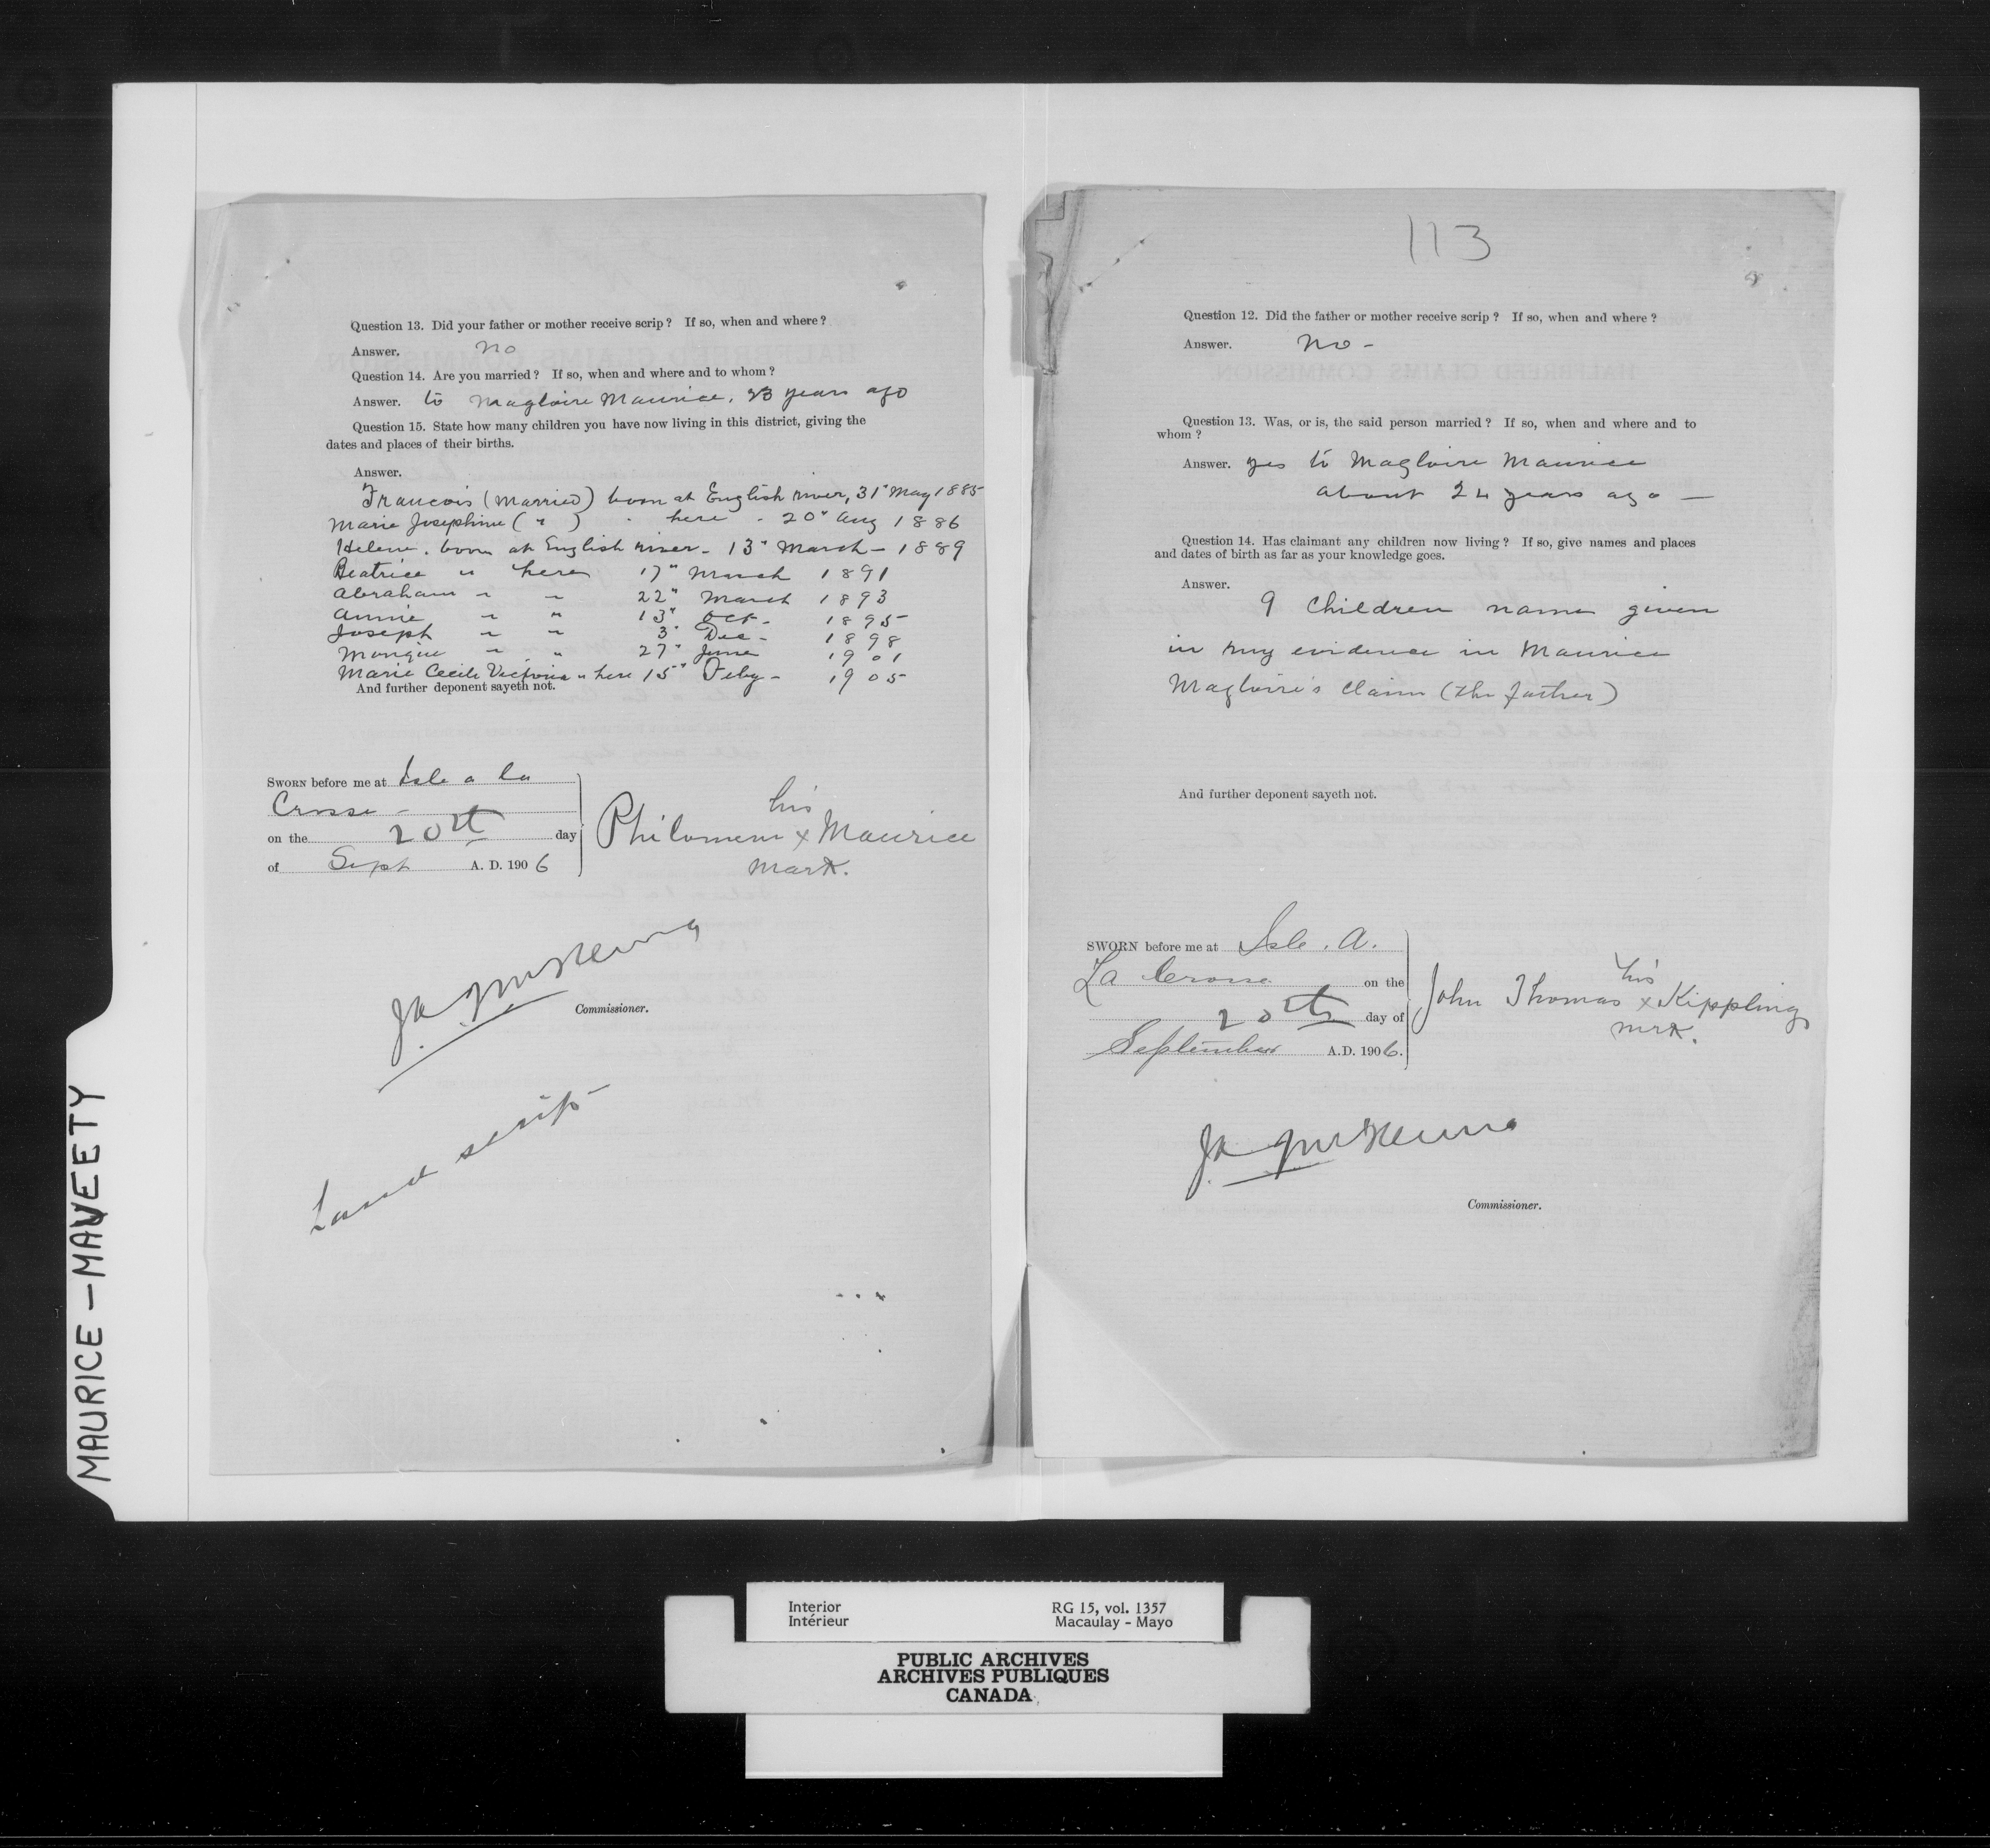 Question 13. Did your father or mother receive scrip? If so, when and where?
Answer. no
Question 14. Are you married? If so, when and where and to whom?
Answer. to Magloire Maurice, 23 years ago
Question 15. State how many children you have now living in this district, giving the
dates and places of their births.
Answer.
Francois (married) born at English river, 31" May 1885
Marie Josephine ( " ) " here - 20" Aug 1886
Helene. born at English river - 13" March - 1889
Beatrice " here 17" March 1891
Abraham " " 22" March 1893
Annie " " 13" Oct - 1895
Joseph " " 3" Dec - 1898
Monique " " 27" June 1901
Marie Cecile Victoria " here 15" Feby - 1905
And further deponent sayeth not.
SWORN before me at Isle a la
Crosse -
on the 20th day
of Sept A. D. 1906
his
Philomene x Maurice
mark.
JA McKenna
Commissioner.
Land scrip
113
Question 12. Did the father or mother receive scrip? If so, when and where?
Answer. no -
Question 13. Was, or is, the said person married? If so, when and where and to
whom?
Answer. yes to Magloire Maurice
about 24 years ago -
Question 14. Has claimant any children now living? If so, give names and places
and dates of birth as far as your knowledge goes.
Answer.
9 Children names given
in my evidence in Maurice
Magloire's claim (the father)
And further deponent sayeth not.
SWORN before me at Isle. A.
La Crosse on the
20th day of
September A.D. 1906.
his
John Thomas x Kippling
mrk.
JA McKenna
Commissioner.
MAURICE - MAVEETY
Interior RG 15, vol. 1357
Intérieur Macaulay - Mayo
PUBLIC ARCHIVES
ARCHIVES PUBLIQUES
CANADA